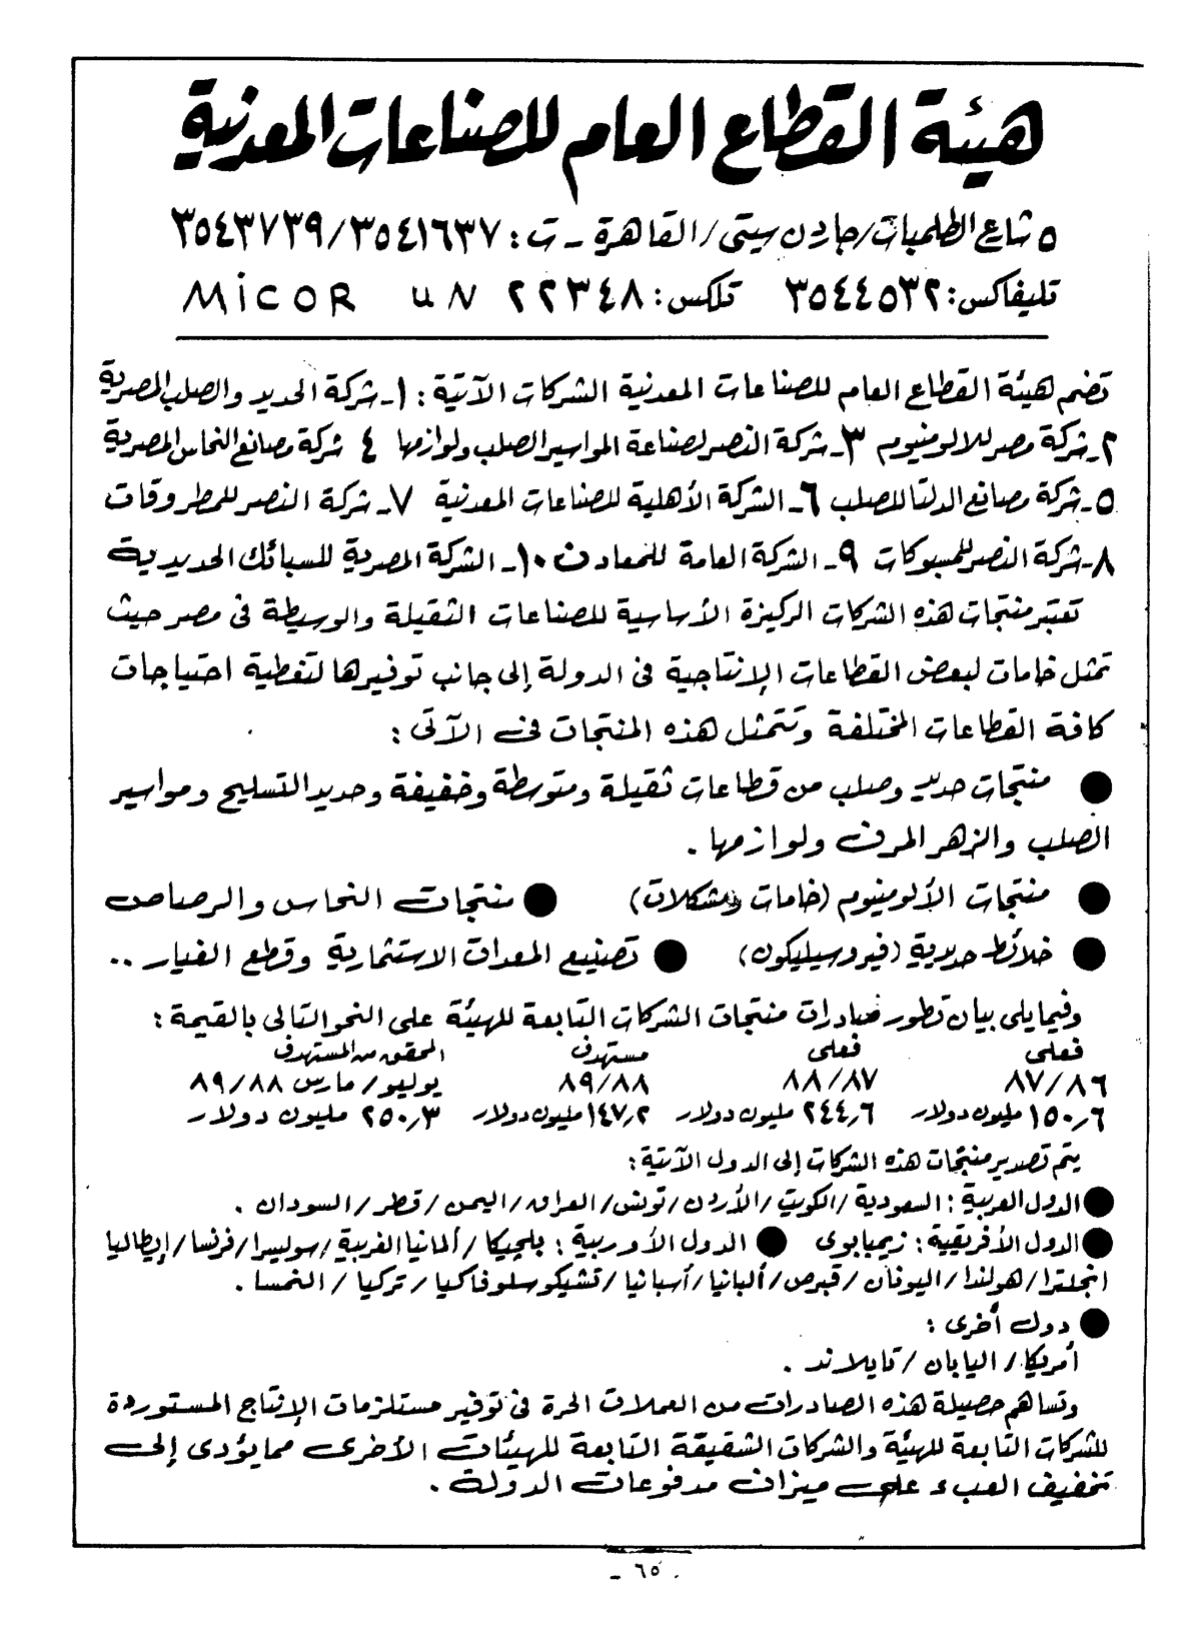 هيئة القطاع العام للصناعات المعدنية
٥ شارع الطلمبات/جاردن سيتى/القاهرة ـ ت: ٣٥٤١٦٣٧/٣٥٤٣٧٣٩
تليفاكس: ٣٥٤٤٥٣٢ تلكس: ٢٢٣٤٨ MiCOR uN
تضم هيئة القطاع العام للصناعات المعدنية الشركات الآتية: ١ـ شركة الحديد والصلب المصرية
٢ـ شركة مصر للالومنيوم ٣ـ شركة النصر لصناعة المواسير الصلب ولوازمها ٤ شركة مصانع النحاس المصرية
٥ـ شركة مصانع الدلتا للصلب ٦ـ الشركة الأهلية للصناعات المعدنية ٧ـ شركة النصر للمطروقات
٨ـ شركة النصر للمسبوكات ٩ـ الشركة العامة للمعادن ١٠ـ الشركة المصرية للسبائك الحديدية
تعتبر منتجات هذه الشركات الركيزة الأساسية للصناعات الثقيلة والوسيطة فى مصر حيث
تمثل خامات لبعض القطاعات الإنتاجية فى الدولة إلى جانب توفيرها لتغطية احتياجات
كافة القطاعات المختلفة وتتمثل هذه المنتجات فى الآتى:
● منتجات حديد وصلب من قطاعات ثقيلة ومتوسطة وخفيفة وحديد التسليح ومواسير
الصلب والزهر المرن ولوازمها.
● منتجات الألومنيوم (خامات ومشكلات) ● منتجات النحاس والرصاص
● خلائط حديدية (فيروسيليكون) ● تصنيع المعدات الاستثمارية وقطع الغيار ..
وفيما يلى بيان تطور صادرات منتجات الشركات التابعة للهيئة على النحو التالى بالقيمة:
فعلى فعلى مستهدف المحقق من المستهدف
٨٧/٨٦ ٨٨/٨٧ ٨٩/٨٨ يوليو/ مارس ٨٩/٨٨
١٥٠,٦ مليون دولار ٢٤٤,٦ مليون دولار ١٤٧,٢ مليون دولار ٢٥٠,٣ مليون دولار
يتم تصدير منتجات هذه الشركات إلى الدول الآتية:
● الدول العربية: السعودية/الكويت/الأردن/تونس/العراق/اليمن/قطر/السودان.
● الدول الأفريقية: زيمبابوى ● الدول الأوربية: بلچيكا/ألمانيا الغربية/سوليسرا/فرنسا/إيطاليا
انجلترا/هولندا/اليونان/قبرص/ألبانيا/أسبانيا/تشيكوسلوفاكيا/تركيا/النمسا.
● دول أخرى:
أمريكا/اليابان/تايلاند.
وتساهم حصيلة هذه الصادرات من العملات الحرة فى توفير مستلزمات الإنتاج المستوردة
للشركات التابعة للهيئة والشركات الشقيقة التابعة للهيئات الأخرى مما يؤدى إلى
تخفيف العبء على ميزان مدفوعات الدولة.
ـ ٦٥